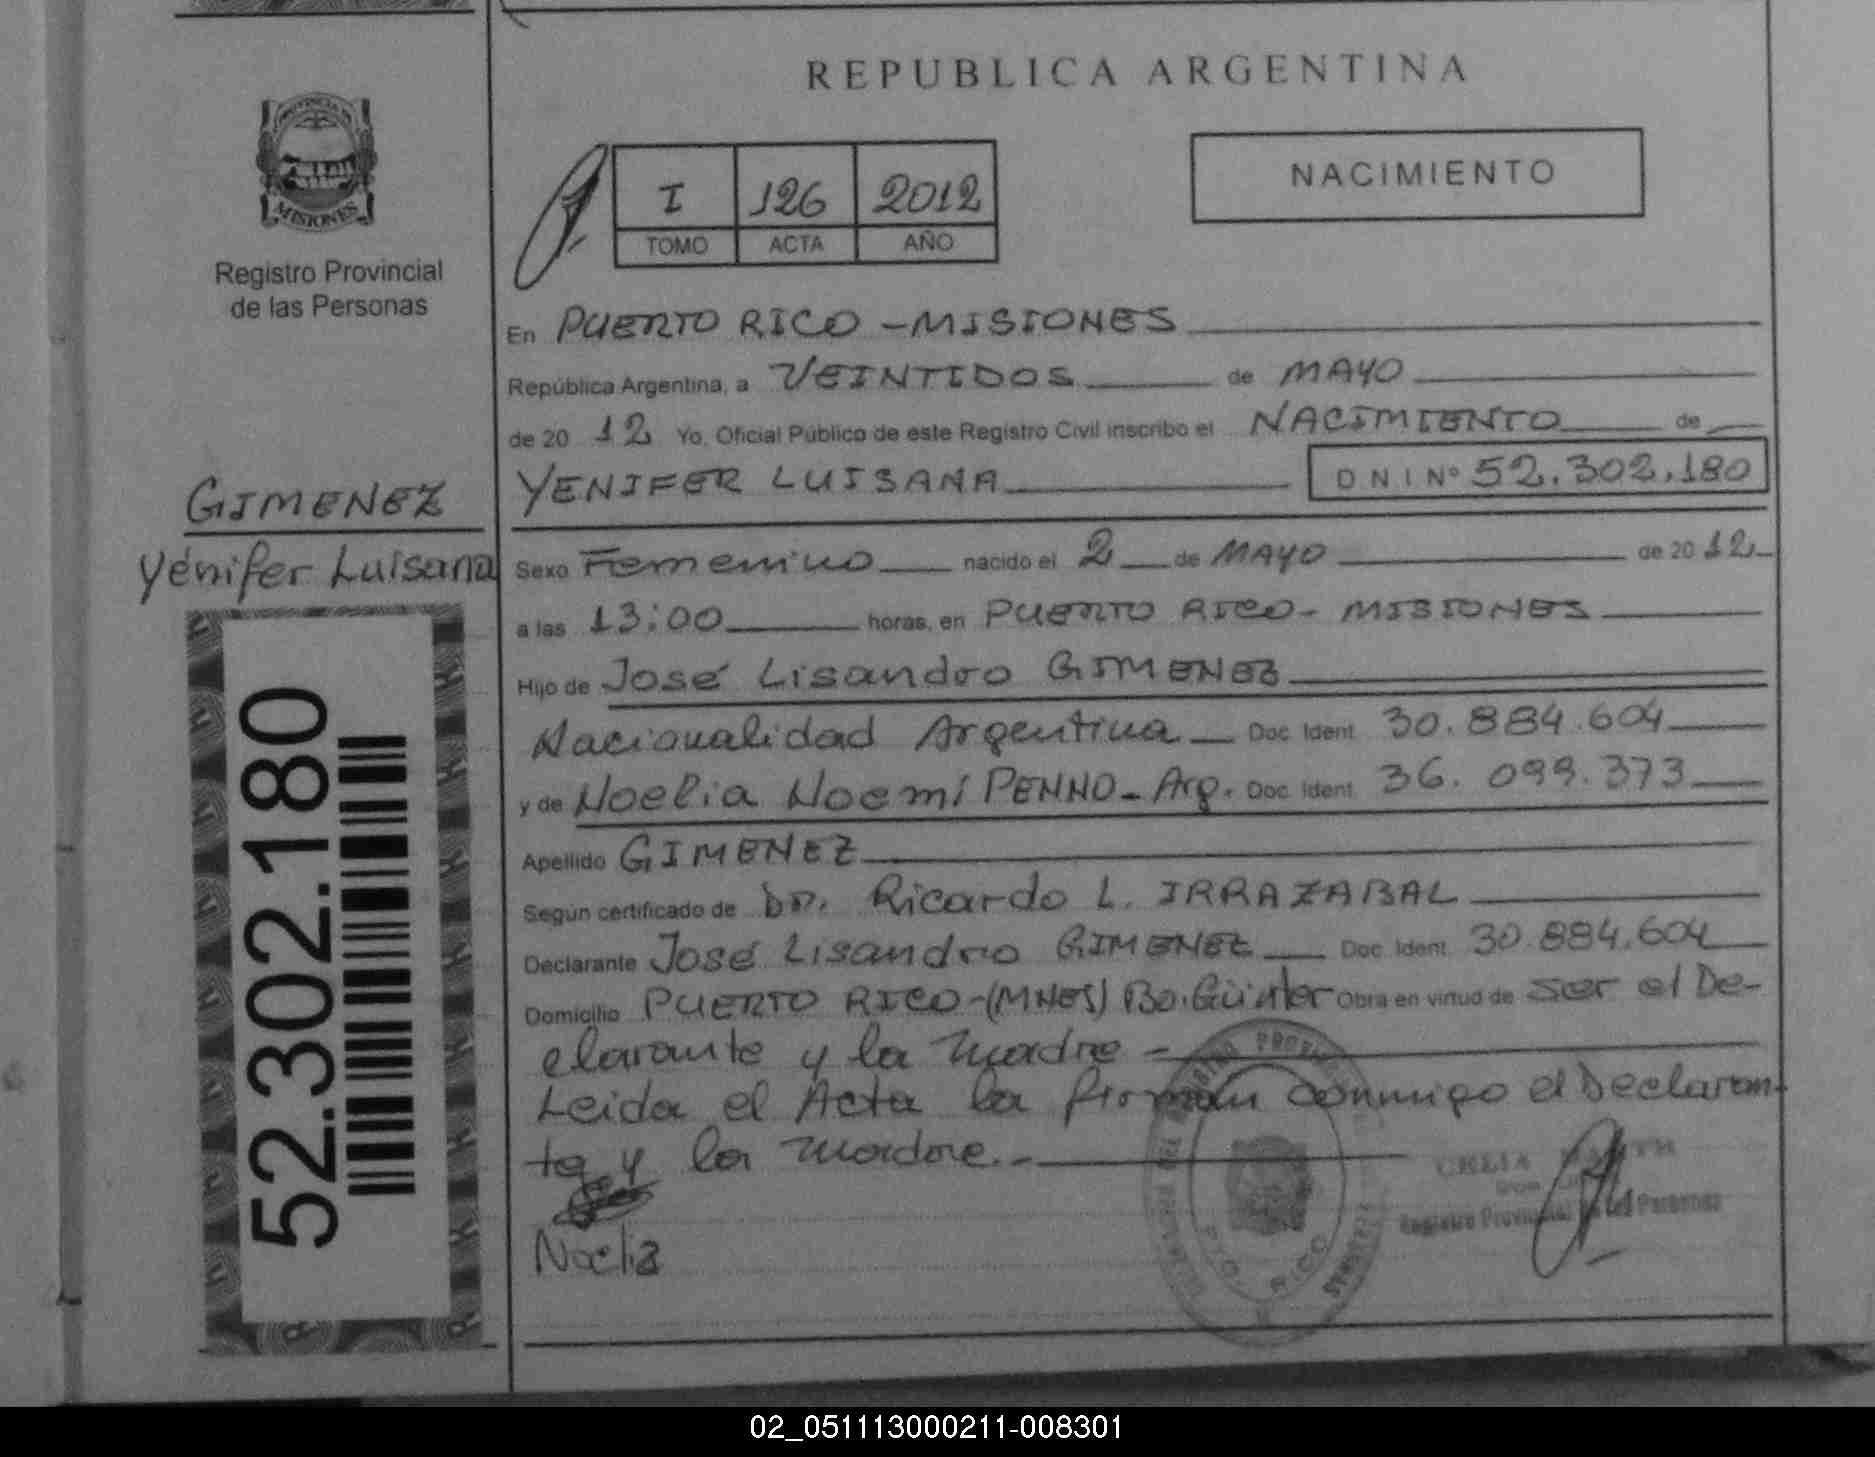 REPUBLICA ARGENTINA
PROVINCIA DE
MISIONES
Registro Provincial
de las Personas
I 126 2012
TOMO ACTA AÑO
NACIMIENTO
En PUERTO RICO - MISIONES
República Argentina, a VEINTIDOS de MAYO
de 20 12 Yo, Oficial Público de este Registro Civil inscribo el NACIMIENTO de
YENIFER LUISANA DNI Nº 52.302.180
GIMENEZ
Yénifer Luisana
Sexo Femenino nacido el 2 de MAYO de 20 12
a las 13:00 horas, en PUERTO RICO - MISIONES
Hijo de José Lisandro GIMENEZ
Nacionalidad Argentina Doc. Ident. 30.884.604
y de Noelia Noemí PENNO - Arg. Doc. Ident. 36.099.373
Apellido GIMENEZ
Según certificado de Dr. Ricardo L. IRRAZABAL
Declarante José Lisandro GIMENEZ Doc. Ident. 30.884.604
Domicilio PUERTO RICO - (MNES) Bo. Günter Obra en virtud de ser el De-
clarante y la madre -
Leida el Acta la firman conmigo el Declaran-
te y la madre. -
Noelia
52.302.180
Registro Provincial de las Personas
RICO
02_051113000211-008301